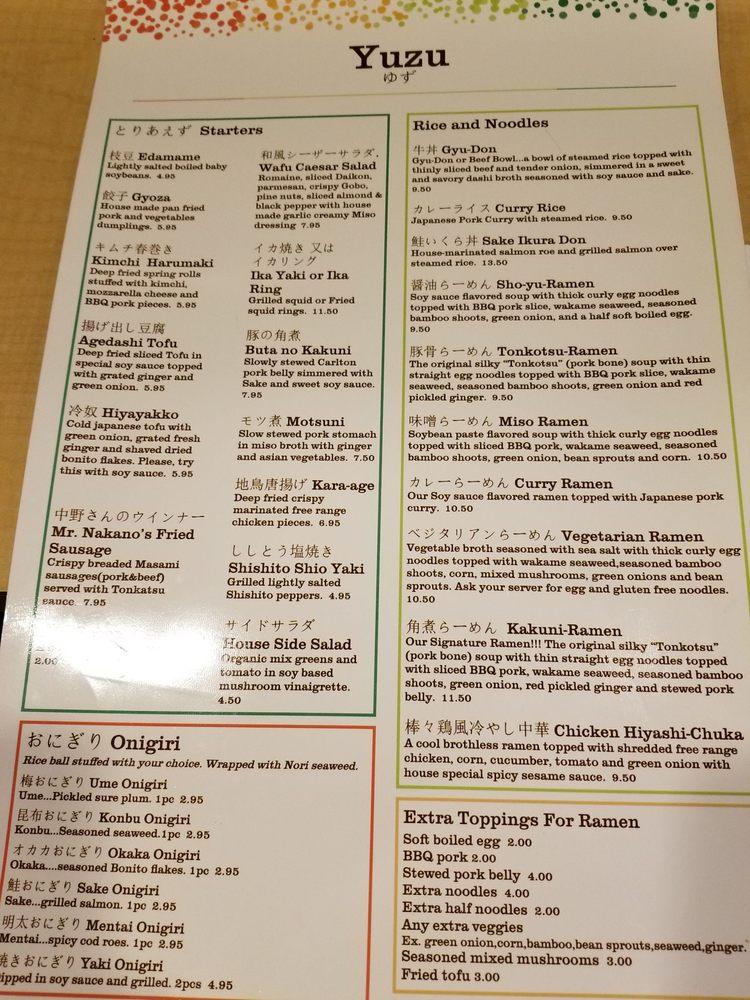 Yuzu
ゆず
とりあえず Starters
枝豆 Edamame
Lightly salted boiled baby
soybeans. 4.95
餃子 Gyoza
House made pan fried
pork and vegetables
dumplings. 5.95
キムチ春巻き
Kimchi Harumaki
Deep fried spring rolls
stuffed with kimchi,
mozzarella cheese and
BBQ pork pieces. 5.95
揚げ出し豆腐
Agedashi Tofu
Deep fried sliced Tofu in
special soy sauce topped
with grated ginger and
green onion. 5.95
冷奴 Hiyayakko
Cold japanese tofu with
green onion, grated fresh
ginger and shaved dried
bonito flakes. Please, try
this with soy sauce. 5.95
中野さんのウインナー
Mr. Nakano's Fried
Sausage
Crispy breaded Masami
sausages(pork&beef)
served with Tonkatsu
sauce. 7.95
2.00
和風シーザーサラダ.
Wafu Caesar Salad
Romaine, sliced Daikon,
parmesan, crispy Gobo,
pine nuts, sliced almond &
black pepper with house
made garlic creamy Miso
dressing 7.95
イカ焼き 又は
イカリング
Ika Yaki or Ika
Ring
Grilled squid or Fried
squid rings. 11.50
豚の角煮
Buta no Kakuni
Slowly stewed Carlton
pork belly simmered with
Sake and sweet soy sauce.
7.95
モツ煮 Motsuni
Slow stewed pork stomach
in miso broth with ginger
and asian vegetables. 7.50
地鳥唐揚げ Kara-age
Deep fried crispy
marinated free range
chicken pieces. 6.95
ししとう塩焼き
Shishito Shio Yaki
Grilled lightly salted
Shishito peppers. 4.95
サイドサラダ
House Side Salad
Organic mix greens and
tomato in soy based
mushroom vinaigrette.
4.50
おにぎり Onigiri
Rice ball stuffed with your choice. Wrapped with Nori seaweed.
梅おにぎり Ume Onigiri
Ume...Pickled sure plum. 1pc 2.95
昆布おにぎり Konbu Onigiri
Konbu...Seasoned seaweed.1pc 2.95
オカカおにぎり Okaka Onigiri
Okaka....seasoned Bonito flakes. 1pc 2.95
鮭おにぎり Sake Onigiri
Sake...grilled salmon. 1pc 2.95
明太おにぎり Mentai Onigiri
Mentai...spicy cod roes. 1pc 2.95
焼きおにぎり Yaki Onigiri
ipped in soy sauce and grilled. 2pcs 4.95
Rice and Noodles
牛丼 Gyu-Don
Gyu-Don or Beef Bowl...a bowl of steamed rice topped with
thinly sliced beef and tender onion, simmered in a sweet
and savory dashi broth seasoned with soy sauce and sake.
9.50
カレーライス Curry Rice
Japanese Pork Curry with steamed rice. 9.50
鮭いくら丼 Sake Ikura Don
House-marinated salmon roe and grilled salmon over
steamed rice. 13.50
醤油らーめん Sho-yu-Ramen
Soy sauce flavored soup with thick curly egg noodles
topped with BBQ pork slice, wakame seaweed, seasoned
bamboo shoots, green onion, and a half soft boiled egg.
9.50
豚骨らーめん Tonkotsu-Ramen
The original silky "Tonkotsu" (pork bone) soup with thin
straight egg noodles topped with BBQ pork slice, wakame
seaweed, seasoned bamboo shoots, green onion and red
pickled ginger. 9.50
味噌らーめん Miso Ramen
Soybean paste flavored soup with thick curly egg noodles
topped with sliced BBQ pork, wakame seaweed, seasoned
bamboo shoots, green onion, bean sprouts and corn. 10.50
カレーらーめん Curry Ramen
Our Soy sauce flavored ramen topped with Japanese pork
curry. 10.50
ベジタリアンらーめん Vegetarian Ramen
Vegetable broth seasoned with sea salt with thick curly egg
noodles topped with wakame seaweed,seasoned bamboo
shoots, corn, mixed mushrooms, green onions and bean
sprouts. Ask your server for egg and gluten free noodles.
10.50
角煮らーめん Kakuni-Ramen
Our Signature Ramen!!! The original silky "Tonkotsu"
(pork bone) soup with thin straight egg noodles topped
with sliced BBQ pork, wakame seaweed, seasoned bamboo
shoots, green onion, red pickled ginger and stewed pork
belly. 11.50
棒々鶏風冷やし中華 Chicken Hiyashi-Chuka
A cool brothless ramen topped with shredded free range
chicken, corn, cucumber, tomato and green onion with
house special spicy sesame sauce. 9.50
Extra Toppings For Ramen
Soft boiled egg 2.00
BBQ pork 2.00
Stewed pork belly 4.00
Extra noodles 4.00
Extra half noodles 2.00
Any extra veggies
Ex. green onion,corn,bamboo,bean sprouts,seaweed,ginger.
Seasoned mixed mushrooms 3.00
Fried tofu 3.00